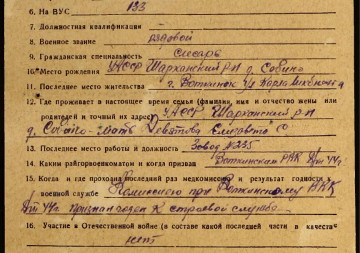 6. На ВУС 133
7. Должностная квалификация
8. Военное звание рядовой
9. Гражданская специальность слесарь
10. Место рождения УАССР Шарканский р-н д. Собино
11. Последнее место жительства г. Воткинск ул Карла Либкнехта
12. Где проживает в настоящее время семья (фамилия, имя и отчество жены или
родителей и точный их адрес) УАССР Шарканский р-н
д. Собино-мать Девятова С.
13. Последнее место работы и должность Завод №235
14. Каким райгорвоенкоматом и когда призван Воткинским РВК
15. Когда и где проходил последний раз медкомиссию и результат годности к
военной службе Комиссию при Воткинскому РВК,
признан годен к строевой службе
16. Участие в Отечественной войне (в составе какой последней части в качестве
нет